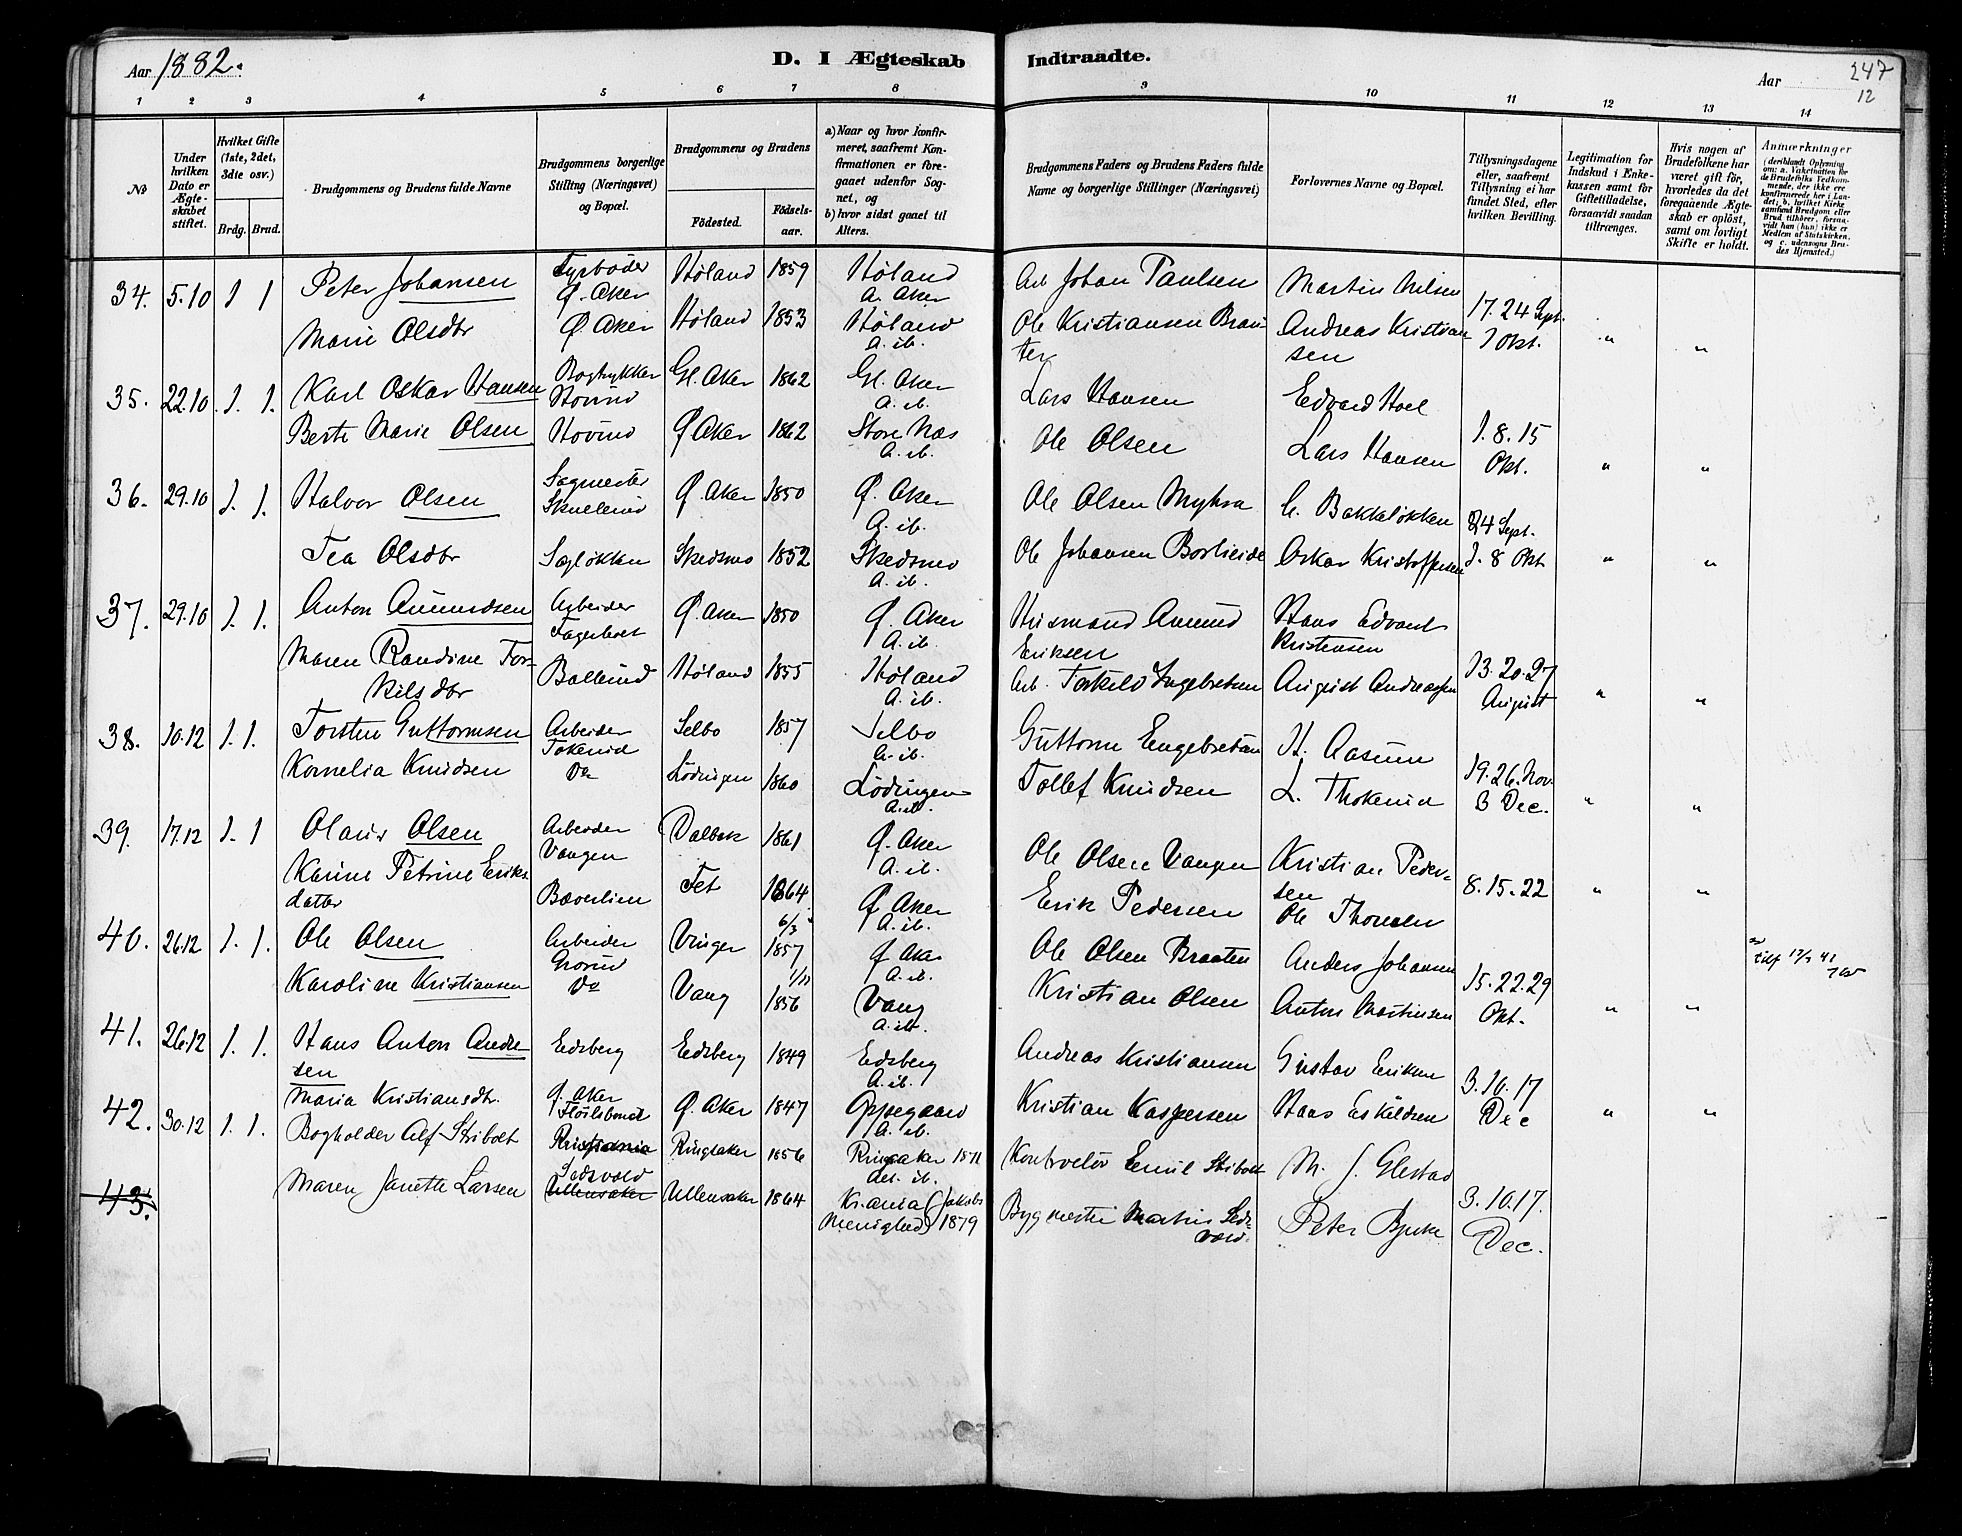 Aar 1882.
D. I Ægteskab Indtraadte.
Aar 247
12
1 2 3 4 5 6 7 8 9 10 11 12 13 14
No
Under hvilken Dato er Ægteskabet stiftet.
Hvilket Gifte (1ste, 2det, 3die osv.)
Brdg. Brud.
Brudgommens og Brudens fulde Navne
Brudgommens borgerlige Stilling (Næringsvei) og Bopæl.
Brudgommens og Brudens
Födested. Födselsaar.
a) Naar og hvor Konfirmeret, saafremt Konfirmationen er foregaaet udenfor Sognet, og
b) hvor sidst gaaet til Alters.
Brudgommens Faders og Brudens Faders fulde Navne og borgerlige Stillinger (Næringsvei)
Forlovernes Navne og Bopæl.
Tillysningsdagene eller, saafremt Tillysning ei har fundet Sled, efter hvilken Bevilling.
Legitimation for Indskud i Enkekassen samt for Giftetilladelse, forsaavidt saadan tiltrænges.
Hvis nogen af Brudefolkene har været gift før, hvorledes da det foregaaende Ægteskab er oplöst, samt om lovligt Skifte er holdt.
Anmærkninger
(deriblandt Oplysning om: a. Vakcination for de Brudefolks Vedkommende, der ikke ere konfirmerede her i Landet; b. hvilket Kirkesamfund Brudgom eller Brud tilhörer, forsaavidt han (hun) ikke er Medlem af Statskirken, og c. udensogns Brudes Hjemsted.)
34. 5.10 1 1 Peter Johansen Fyrbøder Ø. Aker Høland 1859 Høland A. Aker Arb Johan Paulsen Martin Nilsen 17. 24 Sept.
Marie Olsdtr Ø Aker Høland 1853 Høland A. ib. Ole Kristiansen Andreas Kristiansen 1 Okt. " "
35. 22.10. 1. 1. Karl Oskar Hansen Bogtrykker Hovind Gl. Aker 1862 Gl. Aker A. ib. Lars Hansen Edvard Hoel
Berte Marie Olsen Hovind Ø Aker 1862 Store Næs A. ib. Ole Olsen Lars Hansen 1. 8. 15 Okt. " "
36. 29.10 1. 1. Halvor Olsen Sagmester Skullerud Ø. Aker 1850 Ø. Aker A. ib. Ole Olsen Myhra C. Bakkeløkken 24 Sept.
Tea Olsdtr Sagløkken Skedsmo 1852 Skedsmo A. ib. Ole Johansen Oskar Kristoffersen 1. 8 Okt " "
37. 29.10 1. 1. Anton Amundsen Arbeider Ø. Aker 1850 Ø. Aker A. ib. Husmand Amund Eriksen Hans Edvard Kristensen
Maren Randine Torkilsdtr Høland 1855 Høland A. ib. Arb. Torkild Ingebretsen August Andreassen 13. 20. 27 August " "
38. 10.12 1. 1. Torsten Guttormsen Arbeider Tokerud Selbo 1857 Selbo A. ib. Guttorm Engebretsen H. Aasum
Kornelia Knudsen Do Lödingen 1860 Lödingen A. ib. Tollef Knudsen L. Thokerud 19. 26. Nov. 3 Dec. " "
39. 17.12 1. 1 Olaus Olsen Arbeider Vangen 1861 Ø. Aker A. ib. Ole Olsen Vangen Kristian Pedersen
Karine Petrine Eriksdatter Bæverlien Fet 1864 Ø Aker A. ib. Erik Pedersen Ole Thomsen 8. 15. 22 " "
40. 26.12 1. 1. Ole Olsen Arbeider Grorud Vinger 6/3 1857 Ø Aker A. ib. Ole Olsen Braaten Anders Johansen
Karoline Kristiansen Do Vang 1/11 1856 Vang A. ib. Kristian Olsen Anton Martinsen 15. 22. 29 Okt. " "
41. 26.12 1. 1. Hans Anton Andresen Eidsberg Eidsberg 1849 Eidsberg A. ib. Andreas Kristiansen Gustav Eriksen
Maria Kristiansdtr. Ø. Aker Ø. Aker 1847 Oppegaard A. ib. Kristian Kaspersen Hans Eskildsen 3. 10. 17 Dec " "
42. 30.12 1. 1. Bogholder Alf Stibolt Kristiania Ringsaker 1856 Ringsaker 1871 Kontrolør Emil Stibolt M. J. Glestad
43. Maren Janette Larsen Sedvold Ullensaker Ullensaker 1864 Kr.ania (Jakobs Menighed) 1879 Bygmester Martin Sedvold. Peter Bjerke 3. 10. 17. Dec.